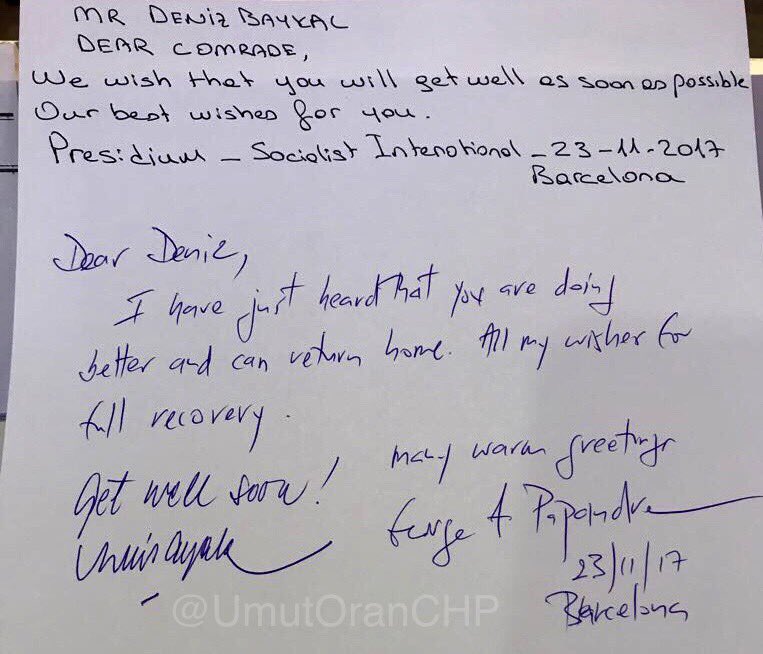 MR DENIZ BAYKAL
DEAR COMRADE,
We wish that you will get well as soon as possible
Our best wishes for you.
Presidium - Socialist Intenational - 23-11-2017
Barcelona
Dear Deniz,
I have just heard that you are doing
better and can return home. All my wishes for
full recovery.
many warm greetings
Get well soon!
George A Papandre
23/11/17
Barcelona
@UmutOranCHP